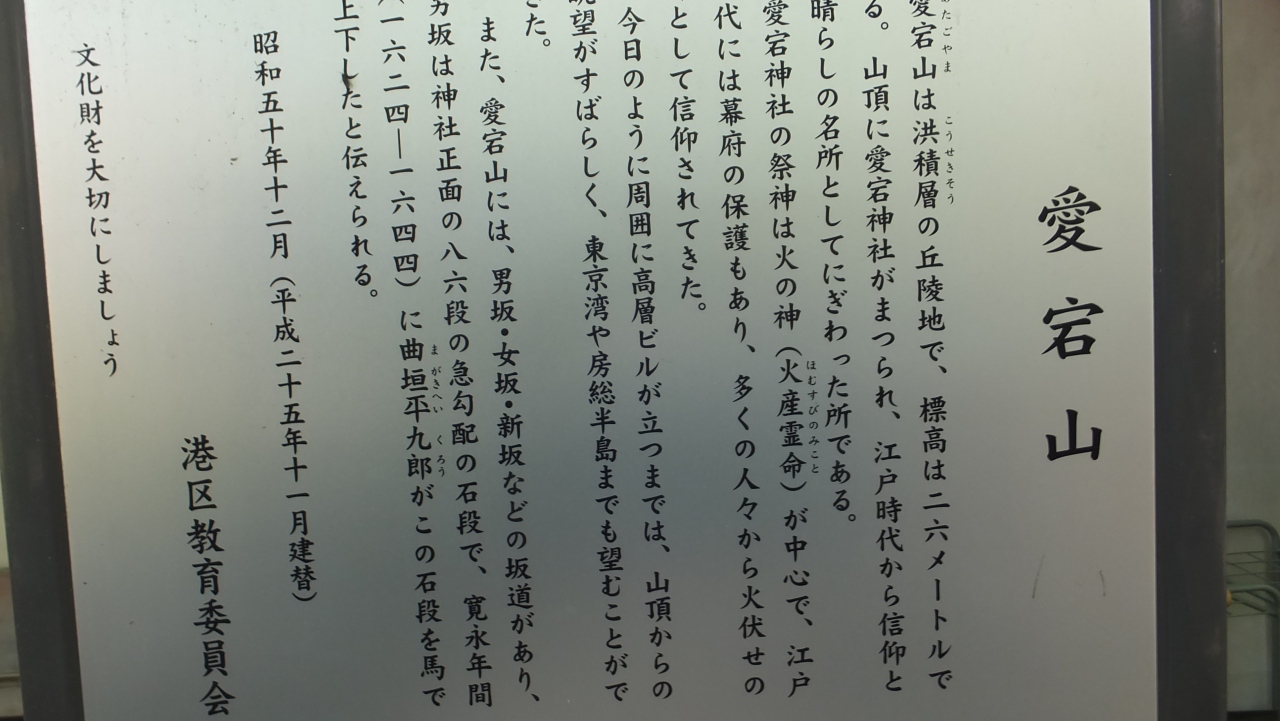 愛宕山
あたごやま こうせきそう
愛宕山は洪積層の丘陵地で、標高は二六メートルで
る。山頂に愛宕神社がまつられ、江戸時代から信仰と
晴らしの名所としてにぎわった所である。
ほむすびのみこと
愛宕神社の祭神は火の神（火産霊命）が中心で、江戸
代には幕府の保護もあり、多くの人々から火伏せの
として信仰されてきた。
今日のように周囲に高層ビルが立つまでは、山頂からの
眺望がすばらしく、東京湾や房総半島までも望むことがで
きた。
また、愛宕山には、男坂・女坂・新坂などの坂道があり、
男坂は神社正面の八六段の急勾配の石段で、寛永年間
まがきへいくろう
一六二四―一六四四）に曲垣平九郎がこの石段を馬で
上下したと伝えられる。
昭和五十年十二月（平成二十五年十一月建替）
港区教育委員会
文化財を大切にしましょう